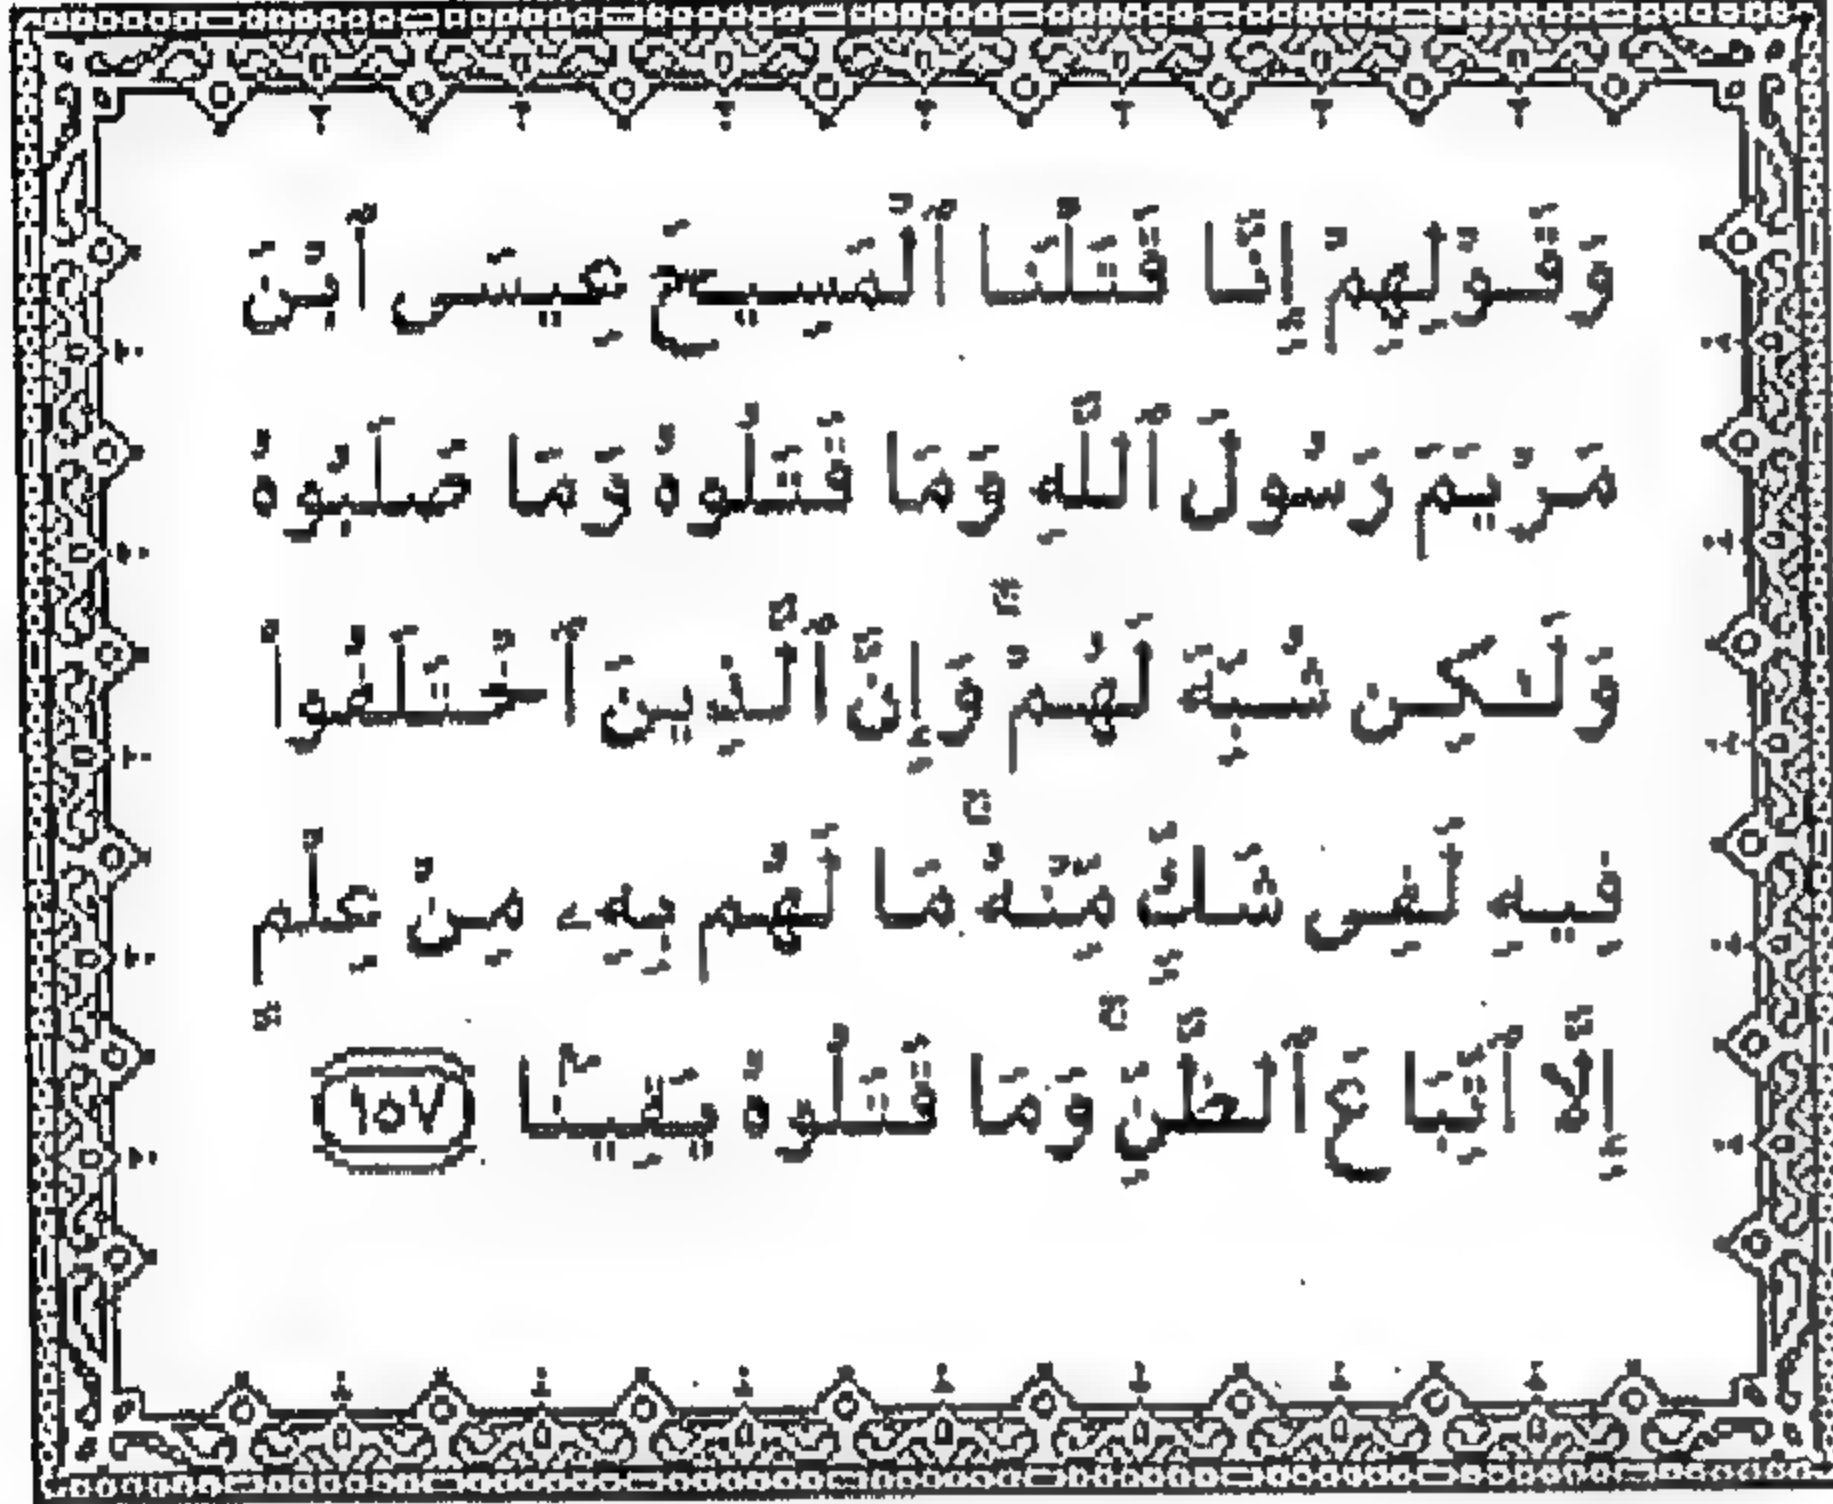 وَقَوْلِهِمْ إِنَّا قَتَلْنَا ٱلْمَسِيحَ عِيسَى ٱبْنَ
مَرْيَمَ رَسُولَ ٱللَّهِ وَمَا قَتَلُوهُ وَمَا صَلَبُوهُ
وَلَـٰكِن شُبِّهَ لَهُمْ ۚ وَإِنَّ ٱلَّذِينَ ٱخْتَلَفُوا۟
فِيهِ لَفِى شَكٍّ مِّنْهُ ۚ مَا لَهُم بِهِۦ مِنْ عِلْمٍ
إِلَّا ٱتِّبَاعَ ٱلظَّنِّ ۚ وَمَا قَتَلُوهُ يَقِينًۢا ١٥٧